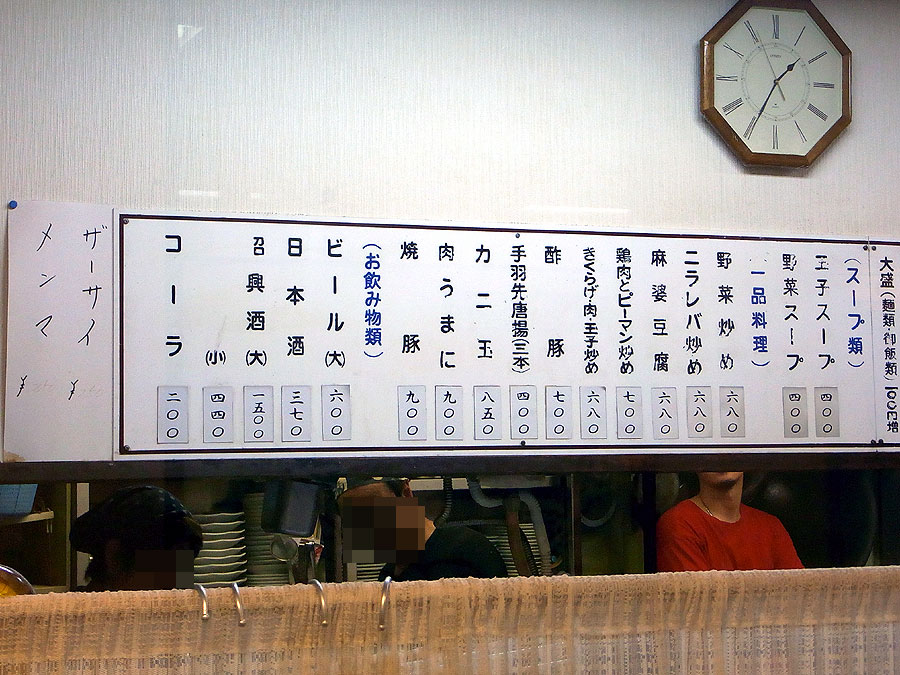 大盛(麺類・御飯類)100円増
(スープ類)
玉子スープ 四〇〇
野菜スープ 四〇〇
一品料理)
野菜炒め 六八〇
ニラレバ炒め 六八〇
麻婆豆腐 六八〇
鶏肉とピーマン炒め 七〇〇
きくらげ・肉・玉子炒め 六八〇
酢豚 七〇〇
手羽先唐揚(三本) 四〇〇
カニ玉 八五〇
肉うまに 九〇〇
焼豚 九〇〇
(お飲み物類)
ビール(大) 六〇〇
日本酒 三七〇
招興酒(大) 一五〇〇
(小) 四四〇
コーラ 二〇〇
ザーサイ ¥
メンマ ¥